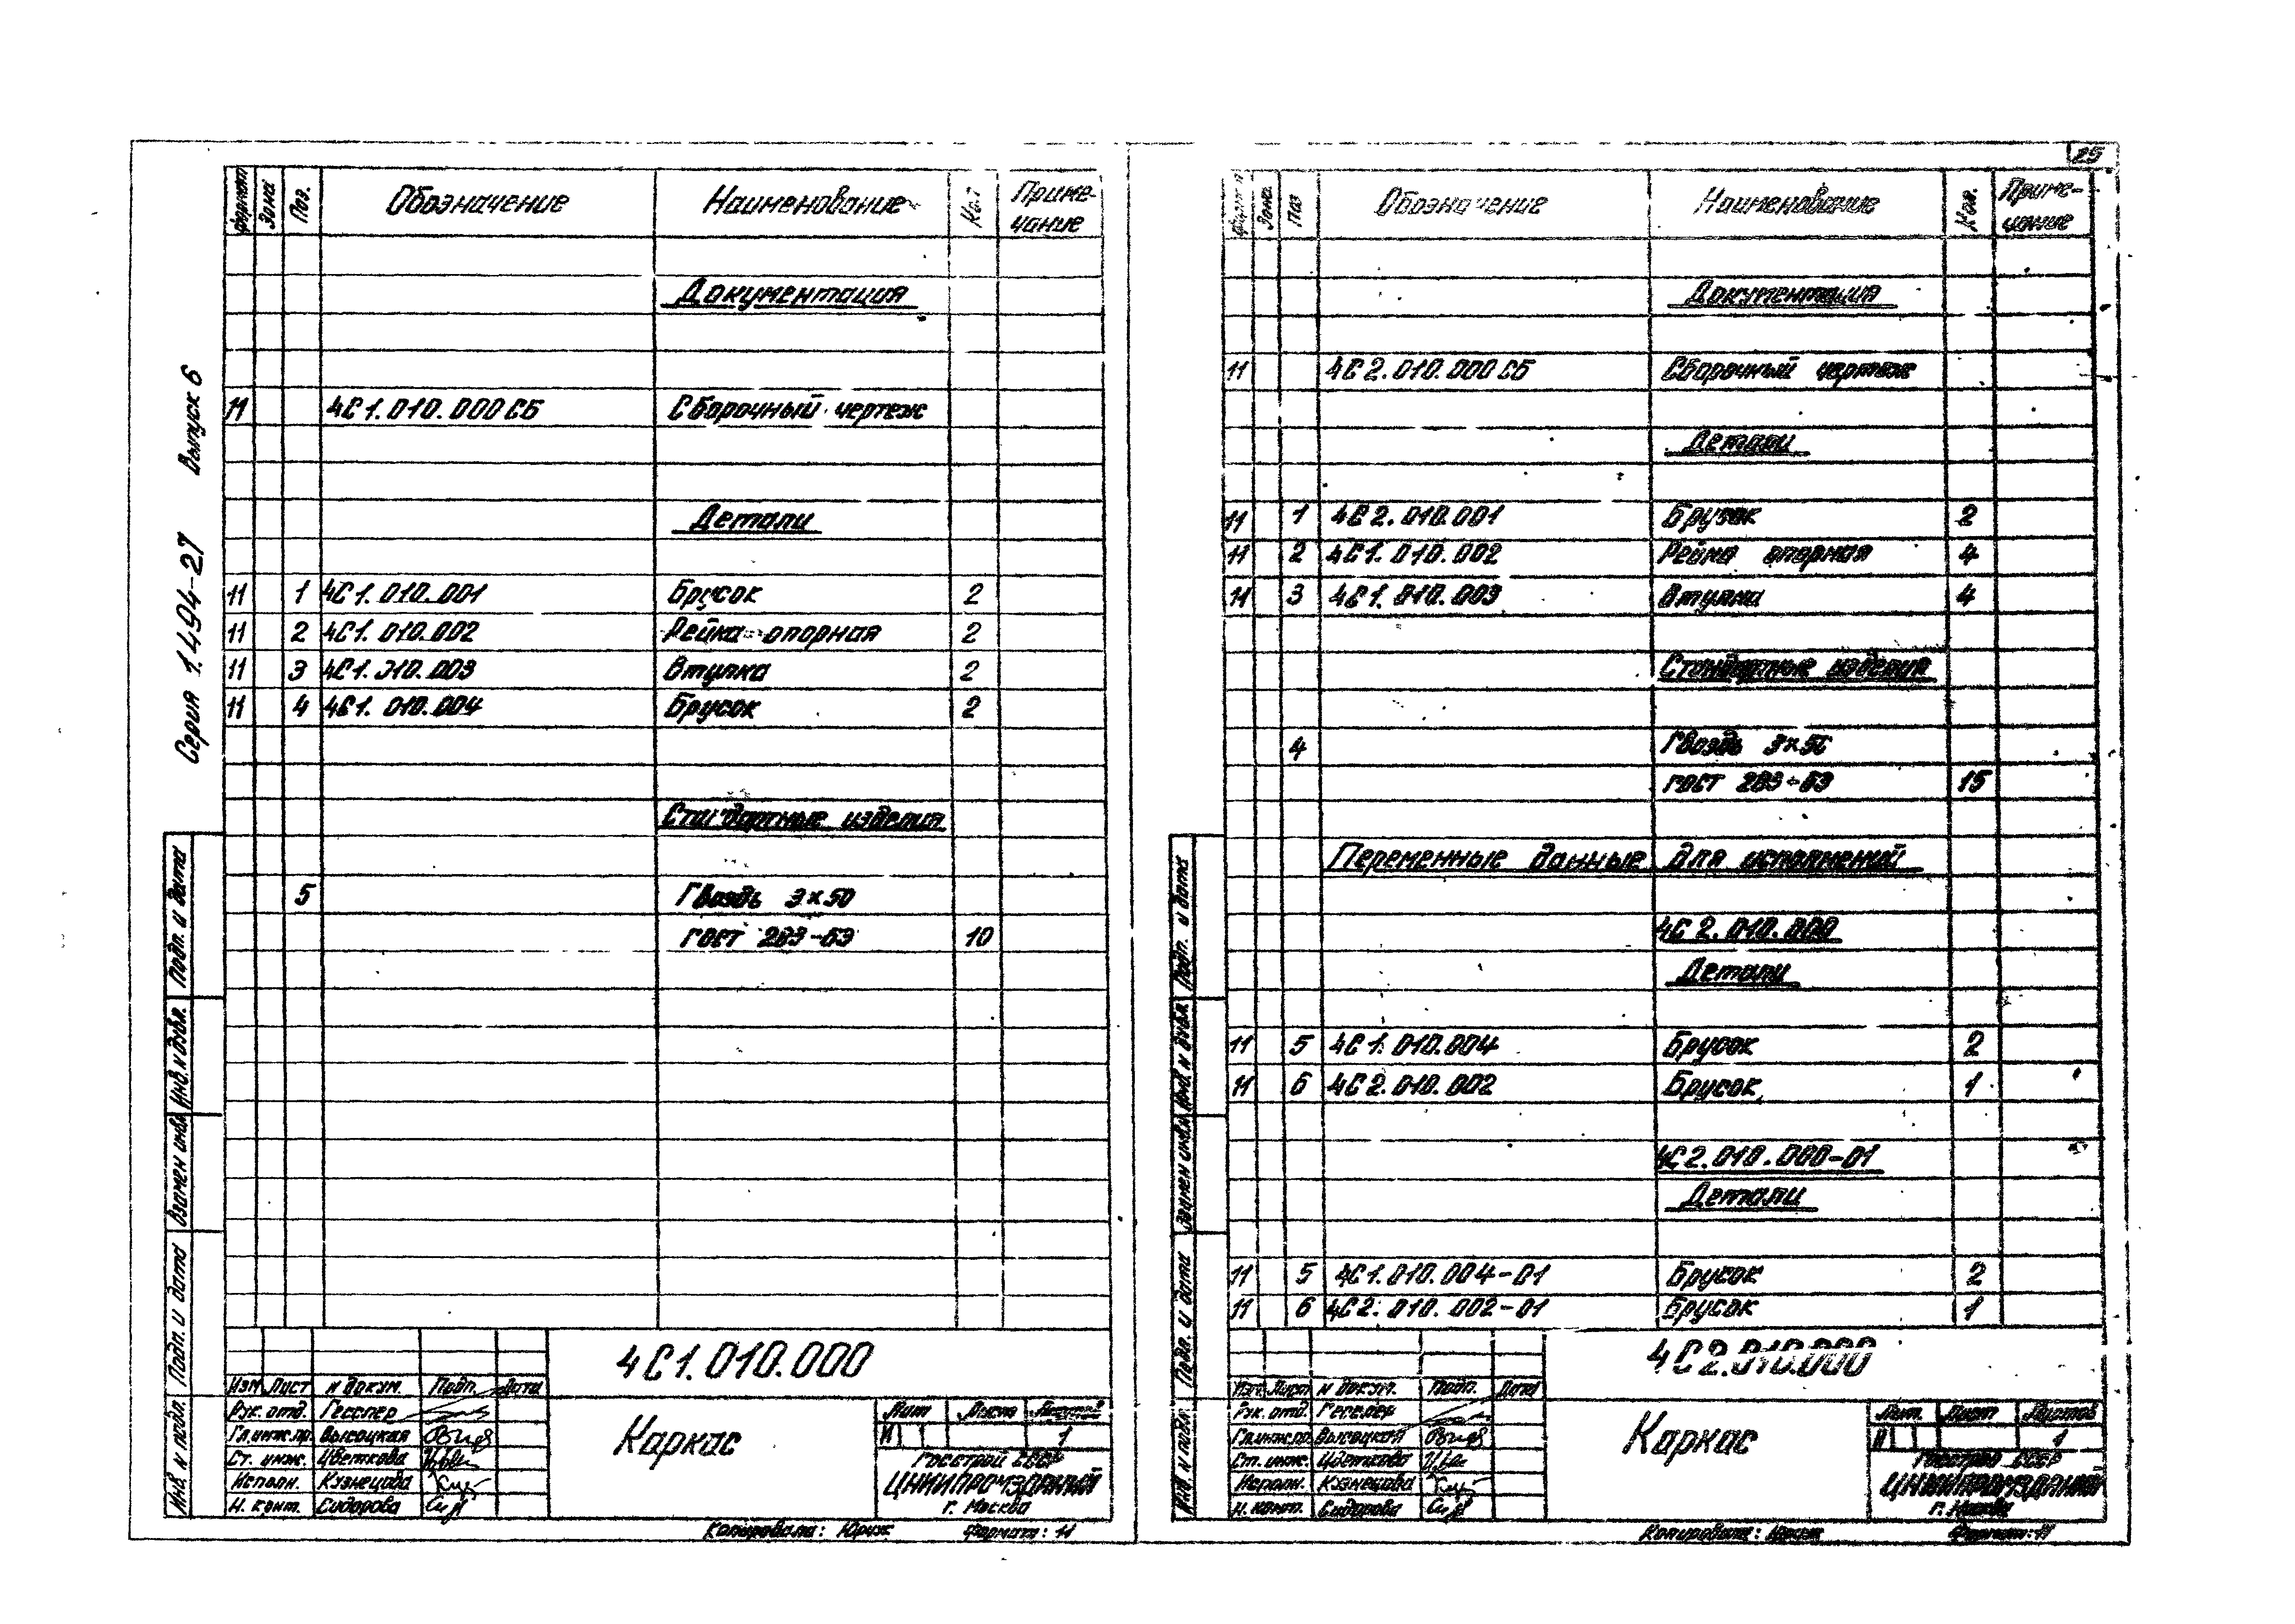 25
Серия 1.494-27 Выпуск 6
Формат Зона Поз. Обозначение Наименование Кол Приме-
чание
Документация
11 4С1.010.000СБ Сборочный чертеж
Детали
11 1 4С1.010.001 Брусок 2
11 2 4С1.010.002 Рейка опорная 2
11 3 4С1.010.003 Втулка 2
11 4 4С1.010.004 Брусок 2
Стандартные изделия
5 Гвоздь 3×50
ГОСТ 283-63 10
Подп. и дата
Инв. N дубл.
Взамен инв.
Подп. и дата
Инв. N подл.
4С1.010.000
Изм Лист N докум. Подп. Дата
Рук. отд. Гесслер
Гл.инж.пр. Высоцкая
Ст. инж. Цветкова
Исполн. Кузнецова
Н. конт. Сидорова
Каркас
Лит Листов
И 1 1
Госстрой СССР
ЦНИИПРОМЗДАНИЙ
г. Москва
Копировала: Формат: 11
Формат Зона Поз Обозначение Наименование Кол. Приме-
чание
Документация
11 4С2.010.000СБ Сборочный чертеж
Детали
11 1 4С2.010.001 Брусок 2
11 2 4С1.010.002 Рейка опорная 4
11 3 4С1.010.003 Втулка 4
Стандартные изделия
4 Гвоздь 3×50
ГОСТ 283-63 15
Переменные данные для исполнений
4С2.010.000
Детали
11 5 4С1.010.004 Брусок 2
11 6 4С2.010.002 Брусок 1
4С2.010.000-01
Детали
11 5 4С1.010.004-01 Брусок 2
11 6 4С2.010.002-01 Брусок 1
Подп. и дата
Инв. N дубл.
Взамен инв.
Подп. и дата
Инв. N подл.
4С2.010.000
Изм Лист N докум. Подп. Дата
Рук. отд. Гесслер
Гл.инж.пр. Высоцкая
Ст. инж. Цветкова
Исполн. Кузнецова
Н. конт. Сидорова
Каркас
Лит. Лист Листов
И 1
Госстрой СССР
ЦНИИПРОМЗДАНИЙ
г. Москва
Копировала: Формат: 11